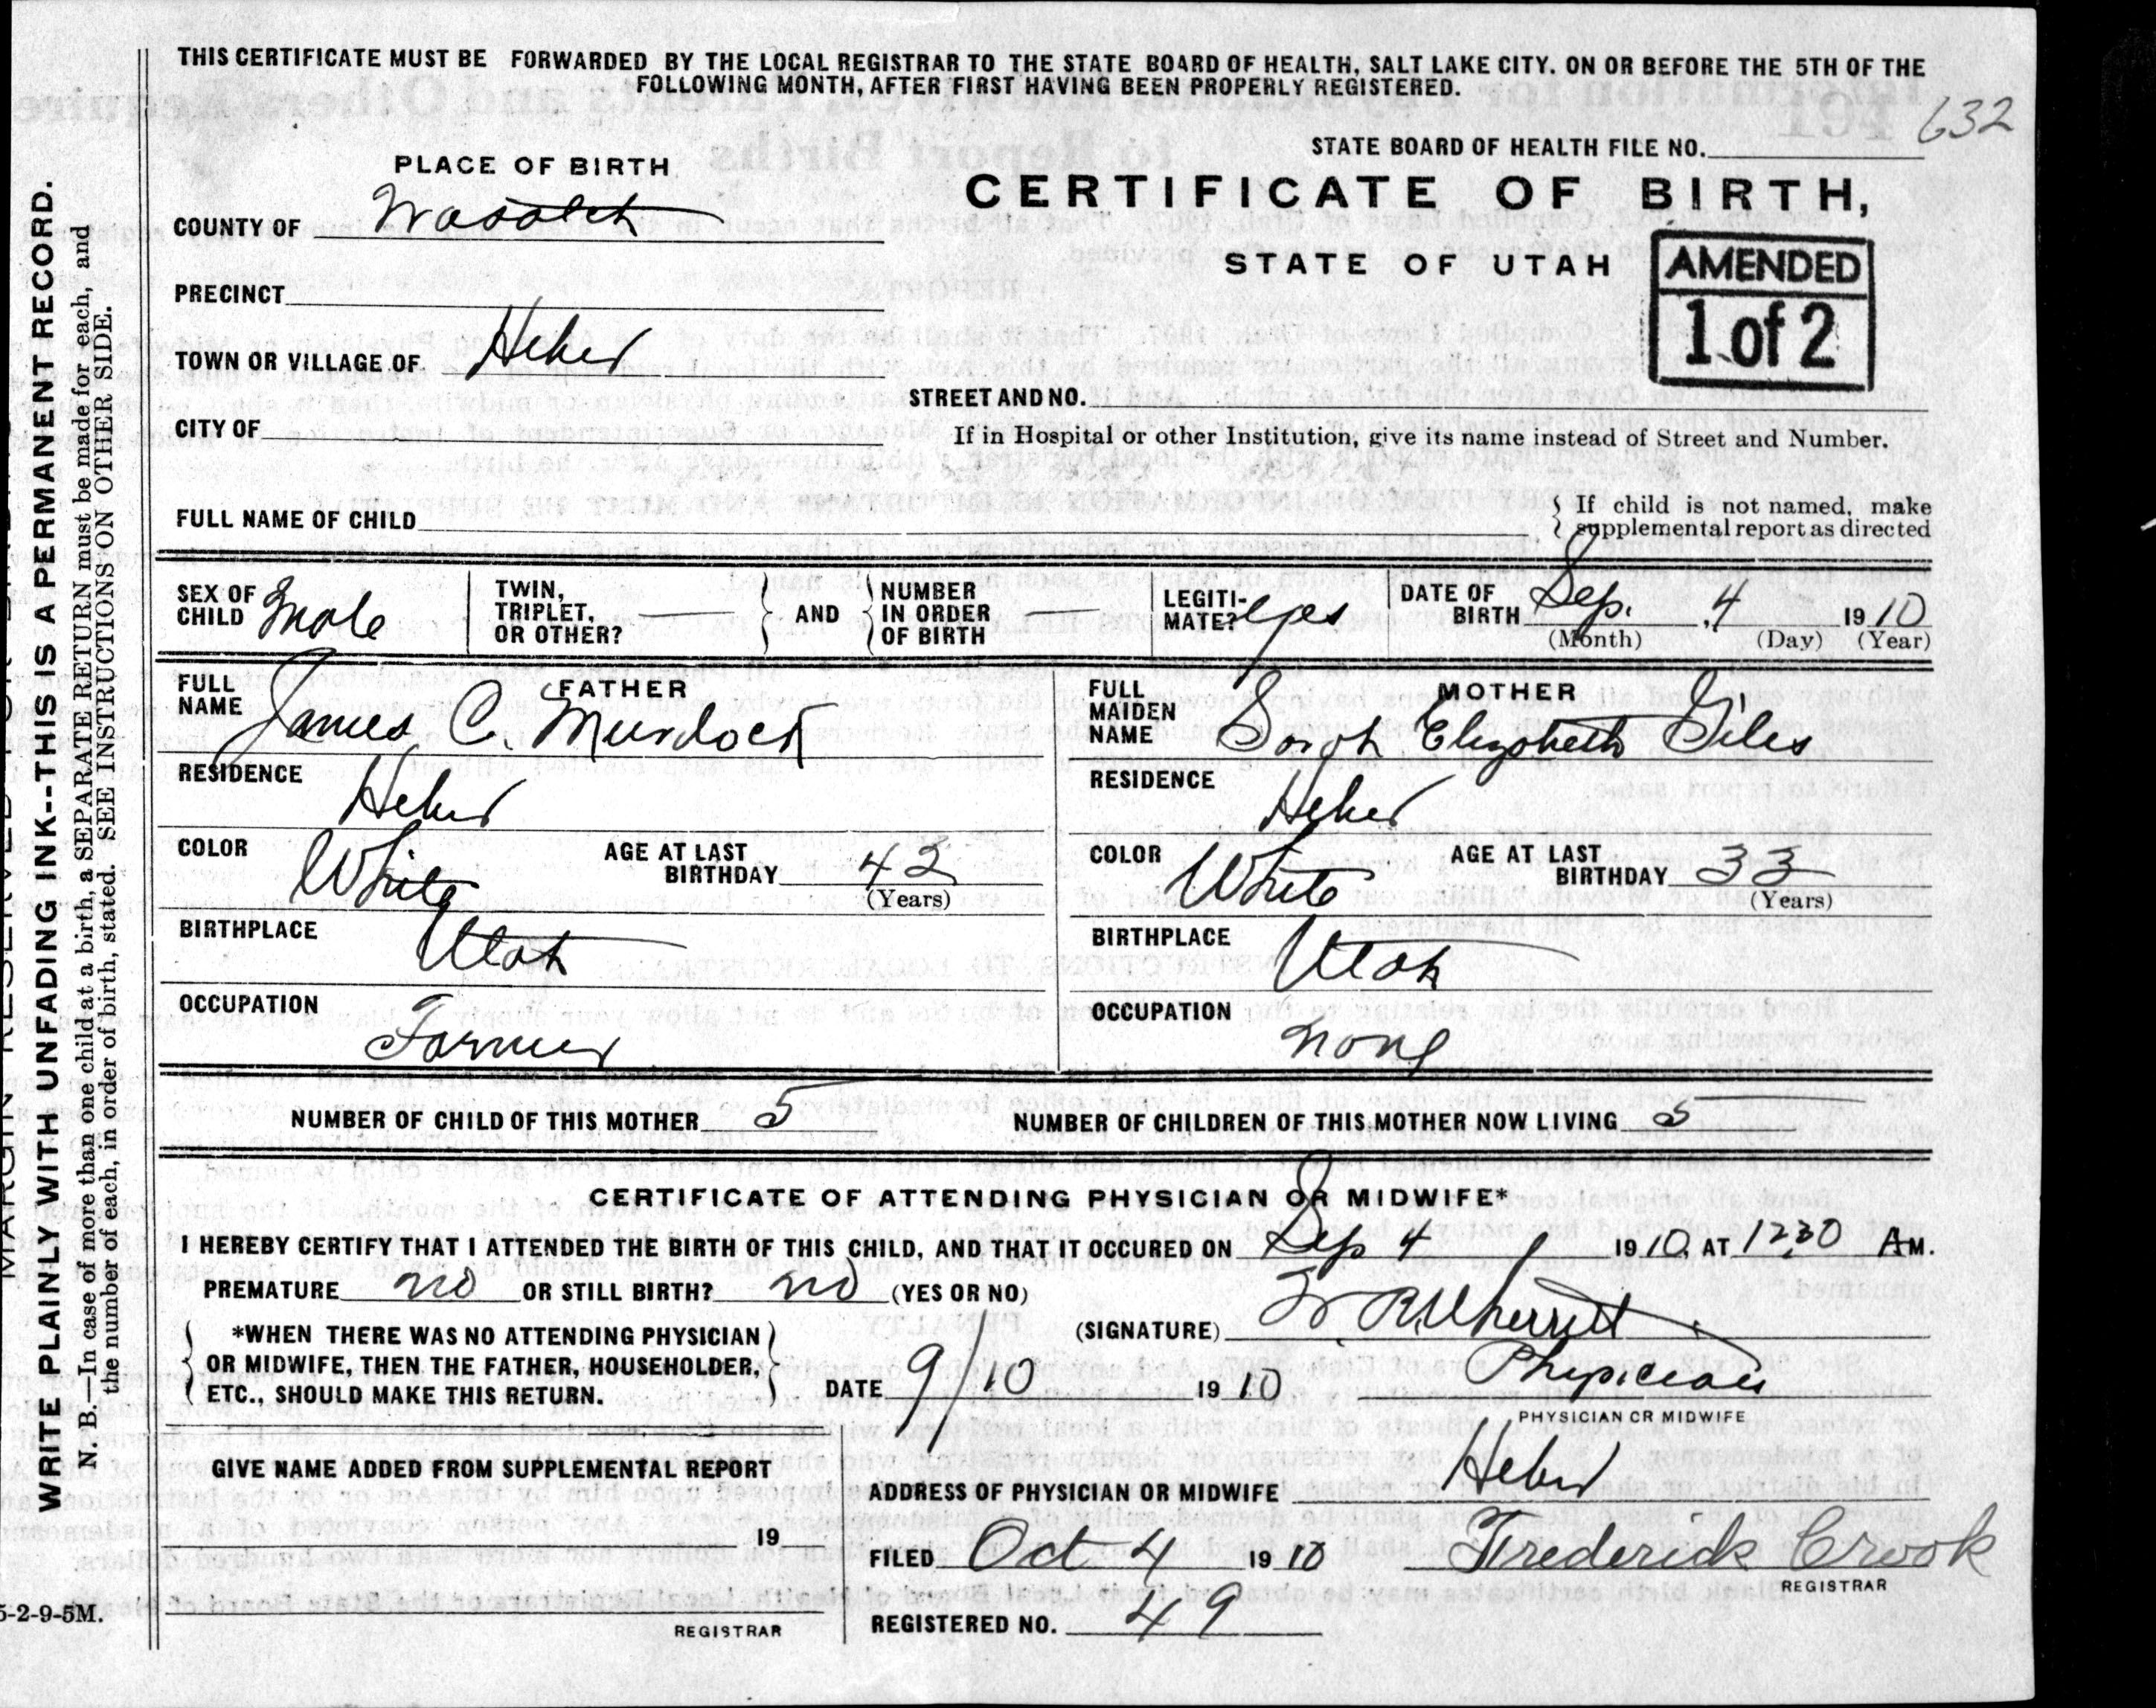 THIS CERTIFICATE MUST BE FORWARDED BY THE LOCAL REGISTRAR TO THE STATE BOARD OF HEALTH, SALT LAKE CITY. ON OR BEFORE THE 5TH OF THE
FOLLOWING MONTH, AFTER FIRST HAVING BEEN PROPERLY REGISTERED.
632
STATE BOARD OF HEALTH FILE NO.
PLACE OF BIRTH
CERTIFICATE OF BIRTH,
COUNTY OF Wasatch
STATE OF UTAH
AMENDED
1 of 2
PRECINCT
TOWN OR VILLAGE OF Heber
STREET AND NO.
CITY OF
If in Hospital or other Institution, give its name instead of Street and Number.
FULL NAME OF CHILD
If child is not named, make
supplemental report as directed
SEX OF CHILD Male
TWIN, TRIPLET, OR OTHER? — AND NUMBER IN ORDER OF BIRTH —
LEGITI-MATE? yes
DATE OF BIRTH Sep. 4 1910
(Month) (Day) (Year)
FATHER
FULL NAME James C. Murdock
RESIDENCE
Heber
COLOR White AGE AT LAST BIRTHDAY 42
(Years)
BIRTHPLACE
Utah
OCCUPATION
Farmer
MOTHER
FULL MAIDEN NAME Sarah Elizabeth Giles
RESIDENCE
Heber
COLOR White AGE AT LAST BIRTHDAY 33
(Years)
BIRTHPLACE
Utah
OCCUPATION
none
NUMBER OF CHILD OF THIS MOTHER 5 NUMBER OF CHILDREN OF THIS MOTHER NOW LIVING 5
CERTIFICATE OF ATTENDING PHYSICIAN OR MIDWIFE*
I HEREBY CERTIFY THAT I ATTENDED THE BIRTH OF THIS CHILD, AND THAT IT OCCURED ON Sep 4 1910. AT 1230 AM.
PREMATURE no OR STILL BIRTH? no (YES OR NO)
(SIGNATURE) W. R. Wherritt
*WHEN THERE WAS NO ATTENDING PHYSICIAN
OR MIDWIFE, THEN THE FATHER, HOUSEHOLDER,
ETC., SHOULD MAKE THIS RETURN.
DATE 9/10 1910
Physician
PHYSICIAN OR MIDWIFE
GIVE NAME ADDED FROM SUPPLEMENTAL REPORT
19
REGISTRAR
ADDRESS OF PHYSICIAN OR MIDWIFE Heber
FILED Oct 4 1910 Frederick Crook
REGISTRAR
REGISTERED NO. 49
5-2-9-5M.
WRITE PLAINLY WITH UNFADING INK--THIS IS A PERMANENT RECORD.
N. B.—In case of more than one child at a birth, a SEPARATE RETURN must be made for each, and
the number of each, in order of birth, stated. SEE INSTRUCTIONS ON OTHER SIDE.